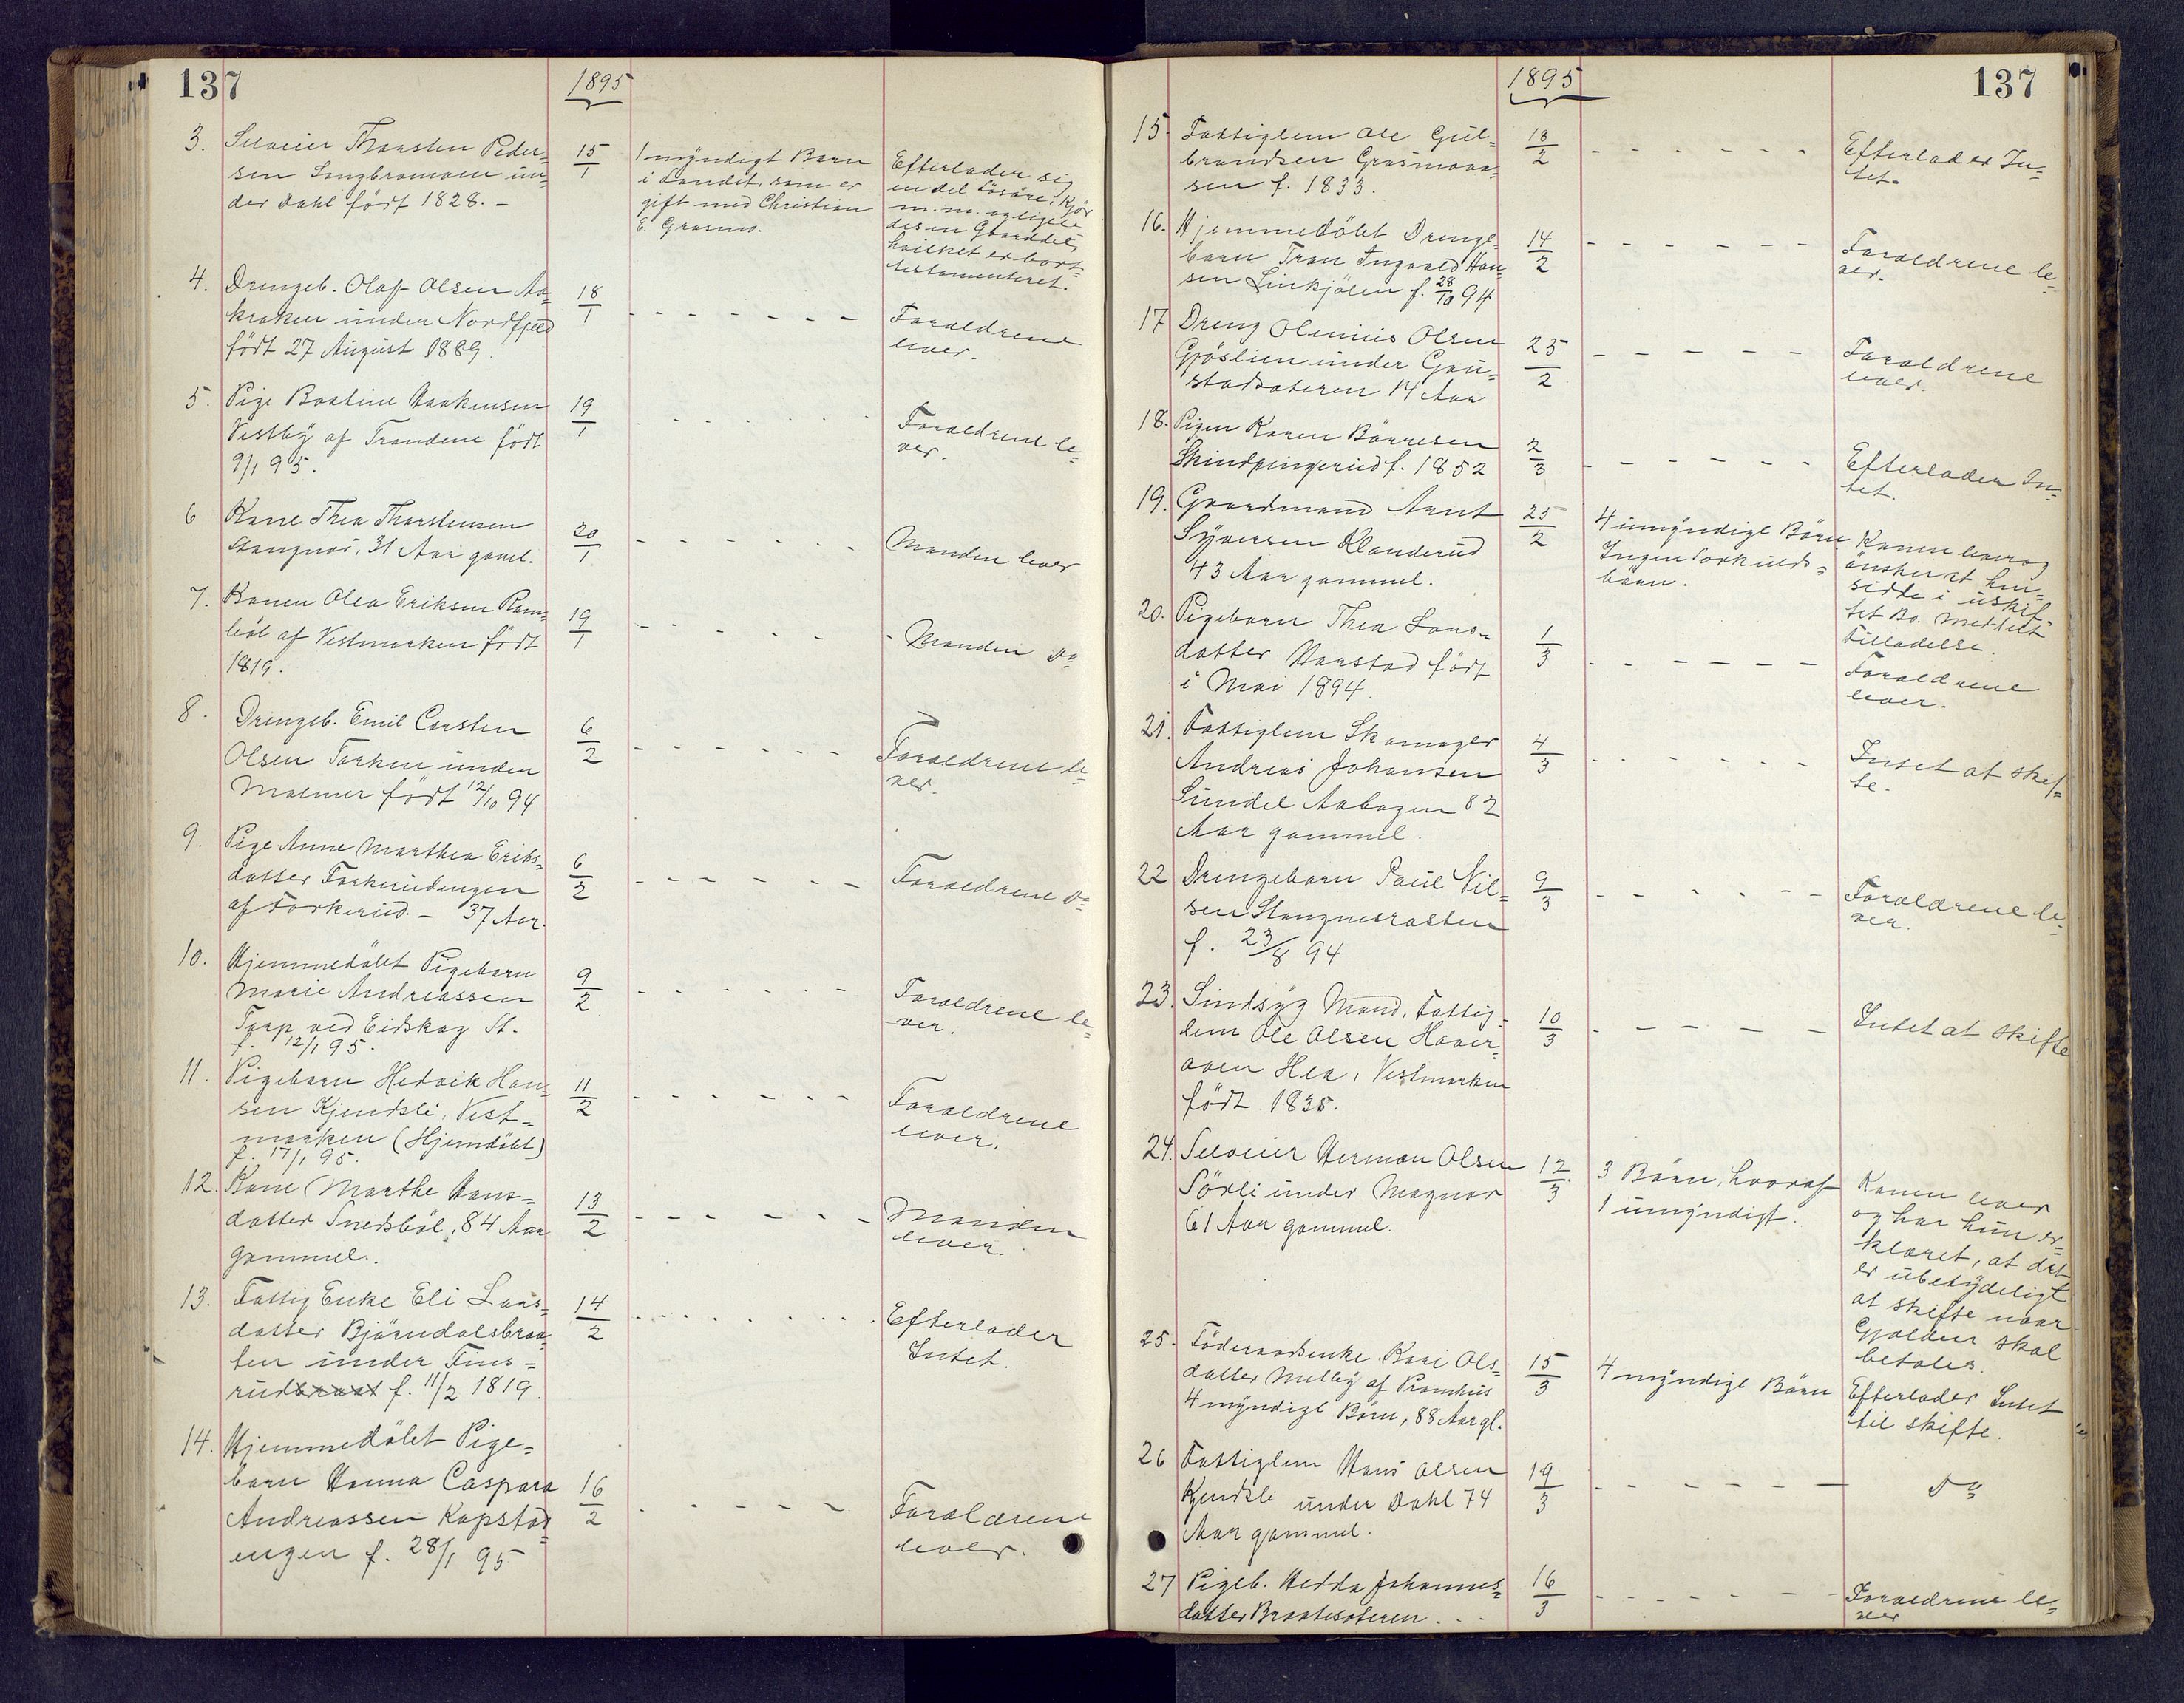 137
1895
3. Selveier Thorsten Peder=
sen Langbromoen un=
der Dahl født 1828. –
15/1
1 myndigt Barn
i Landet, som er
gift med Christian
E. Grasmo.
Efterlader sig
en del Løsøre, Kjør
m.m. og ligele
des en Gaarddel,
hvilket er bort=
testamenteret.
4. Drengeb. Olaf Olsen Aa=
kroken under Nordfjeld
født 27 August 1889.
18/1
- - - - - - -
Foraeldrene
lever.
5. Pige Boatine Haakensen
Vestby af Trandem født
9/1 95.
19/1
- - - - - -
Foraeldrene le=
ver.
6 Kone Thea Thorstensen
Stangnes, 31 Aar gaml.
20/1
- - - - - -
Manden lever
7. Konen Olea Eriksen Ram=
böl af Vestmarken født
1819.
19/1
- - - - -
Manden do
8. Drengeb. Emil Carsten
Olsen Torken under
Malmer født 12/10 94
6/2
- - - - - - -
Foraeldrene le=
ver.
9. Pige Anne Marthea Eriks=
datter Torkerudengen
af Torkerud. – 37 Aar.
6/2
- - - - - - -
Foraeldrene do
10. Hjemmedøbt Pigebarn
Marie Andreassen
Torp ved Eidskog St.
f. 12/1 95.
9/2
- - - - - -
Foraeldrene le=
ver.
11. Pigebarn Hedvik Han=
sen Kjendsli, Vest=
marken (Hjemdøbt)
f. 17/1 95.
11/2
- - - - - -
Foraeldrene
lever.
12. Kone Marthe Hans=
datter Snedsböl, 84 Aar
gammel.
13/2
- - - - - -
Manden
lever.
13. Fattig Enke Eli Lars=
datter Bjørndalsbraa=
ten under Fins=
rud f. 11/2 1819.
14/2
- - - - - - -
Efterlader
Intet.
14. Hjemmedøbt Pige=
barn Hanna Caspara
Andreassen Kapstad=
engen f. 28/1 95
16/2
- - - - -
Foraeldrene
lever.
1895
137
15. Fattiglem Ole Gul=
brandsen Grasmoaa=
sen f. 1833.
18/2
- - - - - -
Efterlader In=
tet.
16. Hjemmedøbt Drenge=
barn Tron Ingvald Han=
sen Linkjølen f. 28/10 94
14/2
- - - - - -
Foraeldrene le=
ver.
17 Dreng Olenius Olsen
Gjøslien under Gau=
stadsæteren 14 Aar
25/2
- - - - -
Foraeldrene
lever.
18. Pigen Karen Børresen
Skindpingerud f. 1852
2/3
- - - - - -
Efterlader In=
tet.
19. Gaardmand Arnt
Syversen Klanderud
43 Aar gammel.
25/2
4 umyndige Børn
Ingen Sorkuldsbørn.
Konen lever og
ønsker at hen=
sidde i uskif=
tet Bo. Meddelt
Tilladelse.
20. Pigebarn Thea Lars=
datter Harstad født
i Mai 1894.
1/3
- - - - - -
Foraeldrene
lever.
21. Fattiglem Skomager
Andreas Johansen
Sundel Aabogen 82
Aar gammel.
4/3
- - - - - -
Intet at skif=
te.
22 Drengebarn Paul Nil=
sen Stangnesroasten
f. 23/8 94
9/3
- - - - -
Foraeldrene le=
ver.
23. Sindsyg Mand, Fattig=
lem Ole Olsen Haver=
aaen Hea, Vestmarken
født 1835.
10/3
- - - - -
Intet at skifte
24. Selveier Herman Olsen
Sørli under Magnor
61 Aar gammel.
12/3
3 Børn, hvoraf
1 umyndigt.
Konen lever
og har hun er=
klæret, at det
er ubetydeligt
at skifte naar
Gjælden skal
betales.
25. Føderaadsenke Kari Ols=
datter Melby af Pramhus
4 myndige Børn, 88 Aar gl.
15/3
4 myndige Børn
Efterlader Intet
til skifte.
26 Fattiglem Hans Olsen
Kjendsli under Dahl 74
Aar gammel.
19/3
- - - - - -
do
27 Pigeb. Hedda Johannes=
datter Braatesæteren . . .
16/3
- - - - - -
Foraeldrene le=
ver